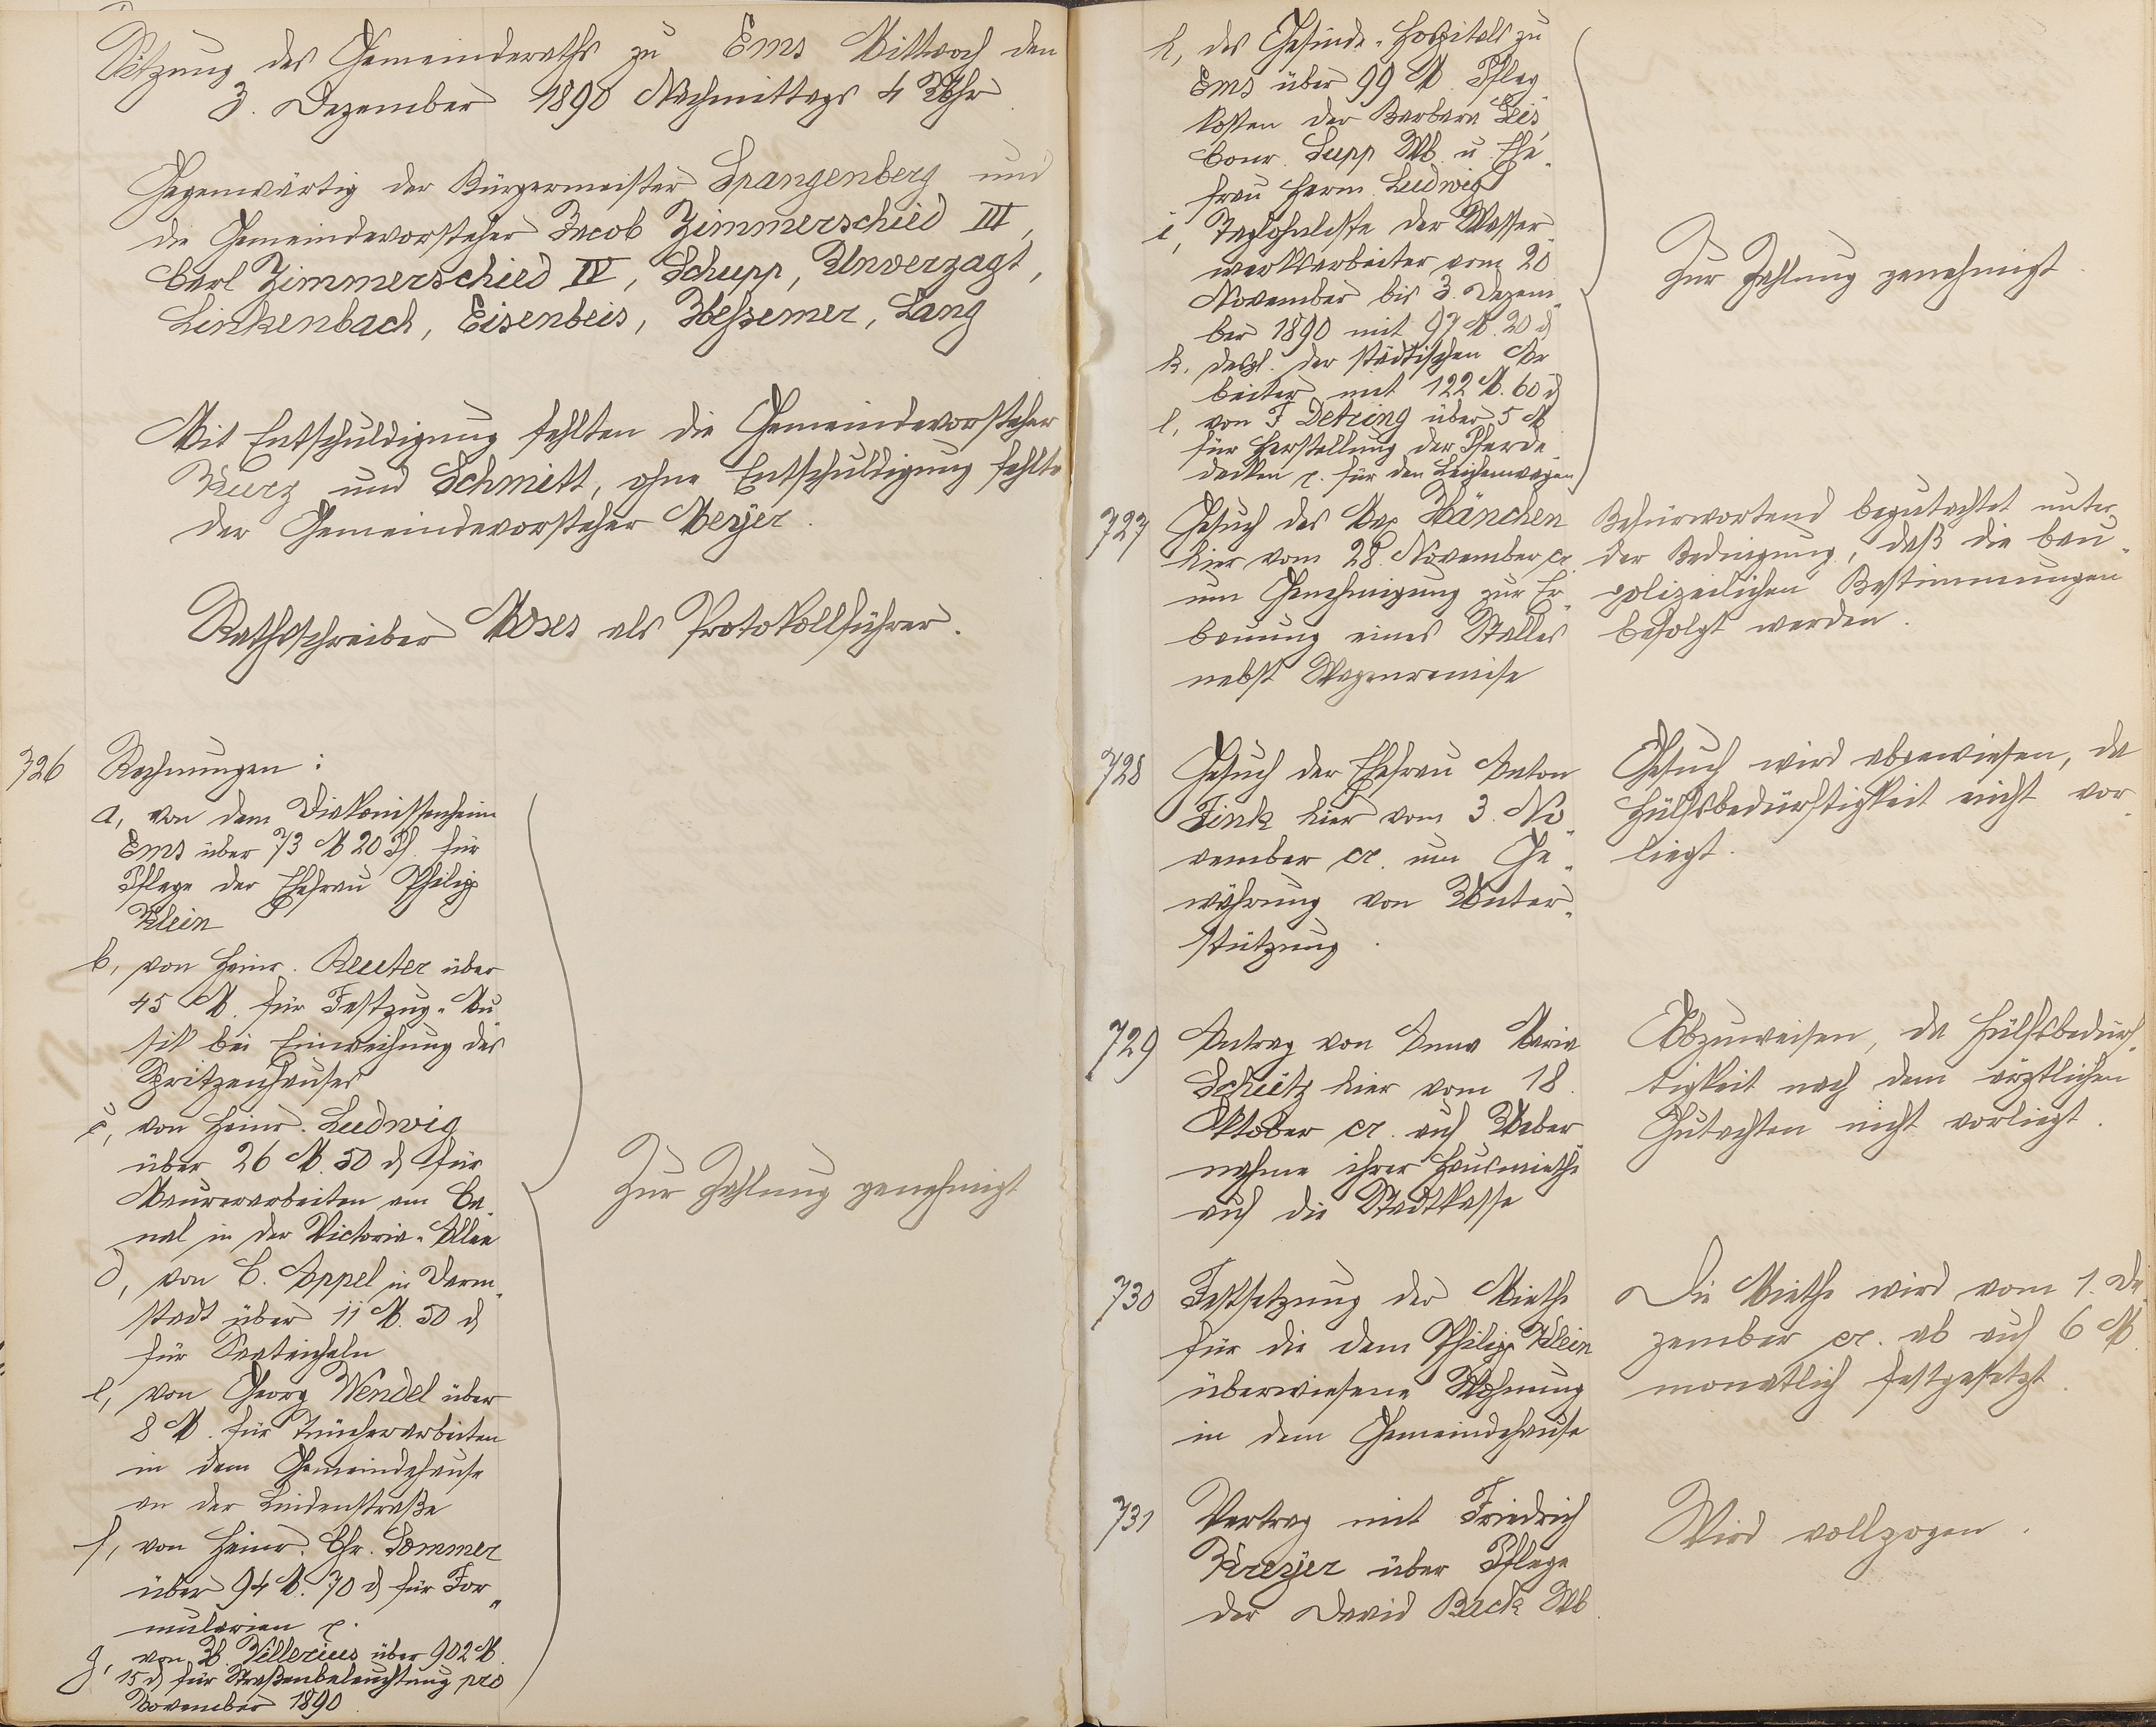 Sitzung des Gemeinderaths zu Ems Mittwoch den
3. Dezember 1890 Nachmittags 4 Uhr
Gegenwärtig der Bürgermeister Spangenberg und
die Gemeindevorsteher Jacob Zimmerschied III,
Carl Zimmerschied IV, Schupp, Unverzagt,
Linkenbach, Eisenbeis, Hessemer, Lang
Mit Entschuldigung fehlten die Gemeindevorsteher
Kurz und Schmitt, ohne Entschuldigung fehlte
der Gemeindevorsteher Meyer.
Rathsschreiber Moses als Protokollführer.
726 Rechnungen:
a, von dem Diakonissenheim
Ems über 73 M 20 Pf. für
Pflege der Ehefrau Philipp
Klein
b, von Heinr. Reuter über
45 M. für Festzug-Mu
sik bei Einweihung des
Spritzenhauses
c, von Heinr. Ludwig
über 26 M. 50 d für
Maurerarbeiten am Ca-
nal in der Victoria-Allee
d, von C. Appel in Darm-
stadt über 11 M. 50 d
für Saateicheln
e, von Georg Wendel über
8 M. für Tüncherarbeiten
in dem Gemeindehause
an der Lindenstraße
f, von Heinr. Chr. Sommer
über 94 M. 70 d für For-
mularien p.
g, von H. Villerius über 902 M.
15 d für Straßenbeleuchtung pro
November 1890
Zur Zahlung genehmigt
h, des Gesinde-Hospitals zu
Ems über 99 M. Pfleg-
kosten der Barbara Leis,
Conr. Supp Wb. u Ehe-
frau Herm. Ludwig
i, Taglohnliste der Wasser-
werksarbeiter vom 20
November bis 3. Dezem-
ber 1890 mit 97 M. 20 d
k, desgl. der städtischen Ar
beiter mit 122 M. 60 d
l, von F Detring über 5 M
für Herstellung der Pferde-
decken p. für den Leichenwagen
Zur Zahlung genehmigt.
727 Gesuch des Max Hänchen
hier vom 28. November cr.
um Genehmigung zur Er-
bauung eines Stalles
nebst Wagenremise
Befürwortend begutachtet unter
der Bedingung, daß die bau-
polizeilichen Bestimmungen
befolgt werden.
728 Gesuch der Ehefrau Anton
Fink hier vom 3. No-
vember cr. um Ge-
währung von Unter-
stützung.
Gesuch wird abgewiesen, da
Hülfsbedürftigkeit nicht vor-
liegt.
729 Antrag von Anna Maria
Schütz hier vom 18.
Oktober cr. auf Ueber
nahme ihrer Hausmiethe
auf die Stadtkasse
Abzuweisen, da Hülfsbedürf-
tigkeit nach dem ärztlichen
Gutachten nicht vorliegt.
730 Festsetzung der Miethe
für die dem Philipp Klein
überwiesene Wohnung
in dem Gemeindehause
Die Miethe wird vom 1. De-
zember cr. ab auf 6 M.
monatlich festgesetzt.
731 Vertrag mit Friedrich
Kreyer über Pflege
der David Back Wb.
Wird vollzogen.